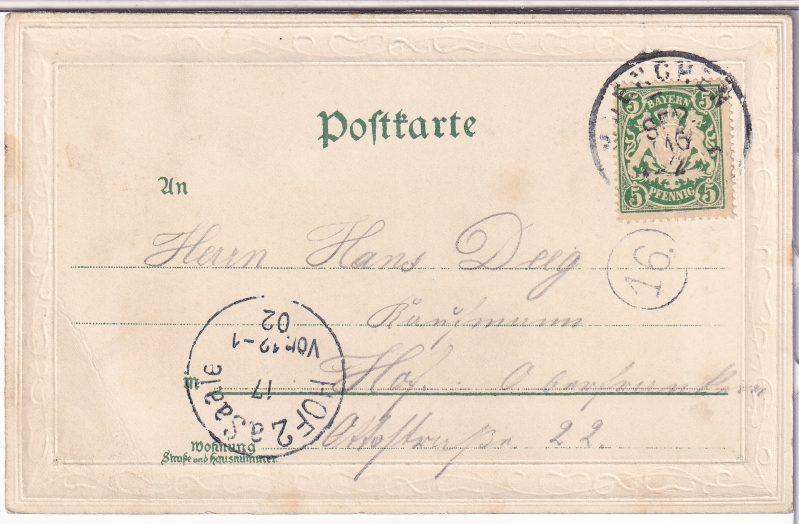 MÜNCHEN
5 BAYERN 5
5 PFENNIG 5
Postkarte
An
16.
Herrn Hans Deeg
Kaufmann
in Hof. Oberfranken
Ottostraße 22.
Wohnung
Straße und Hausnummer
HOF 2 a Saale
17
Vor. 12-1
02